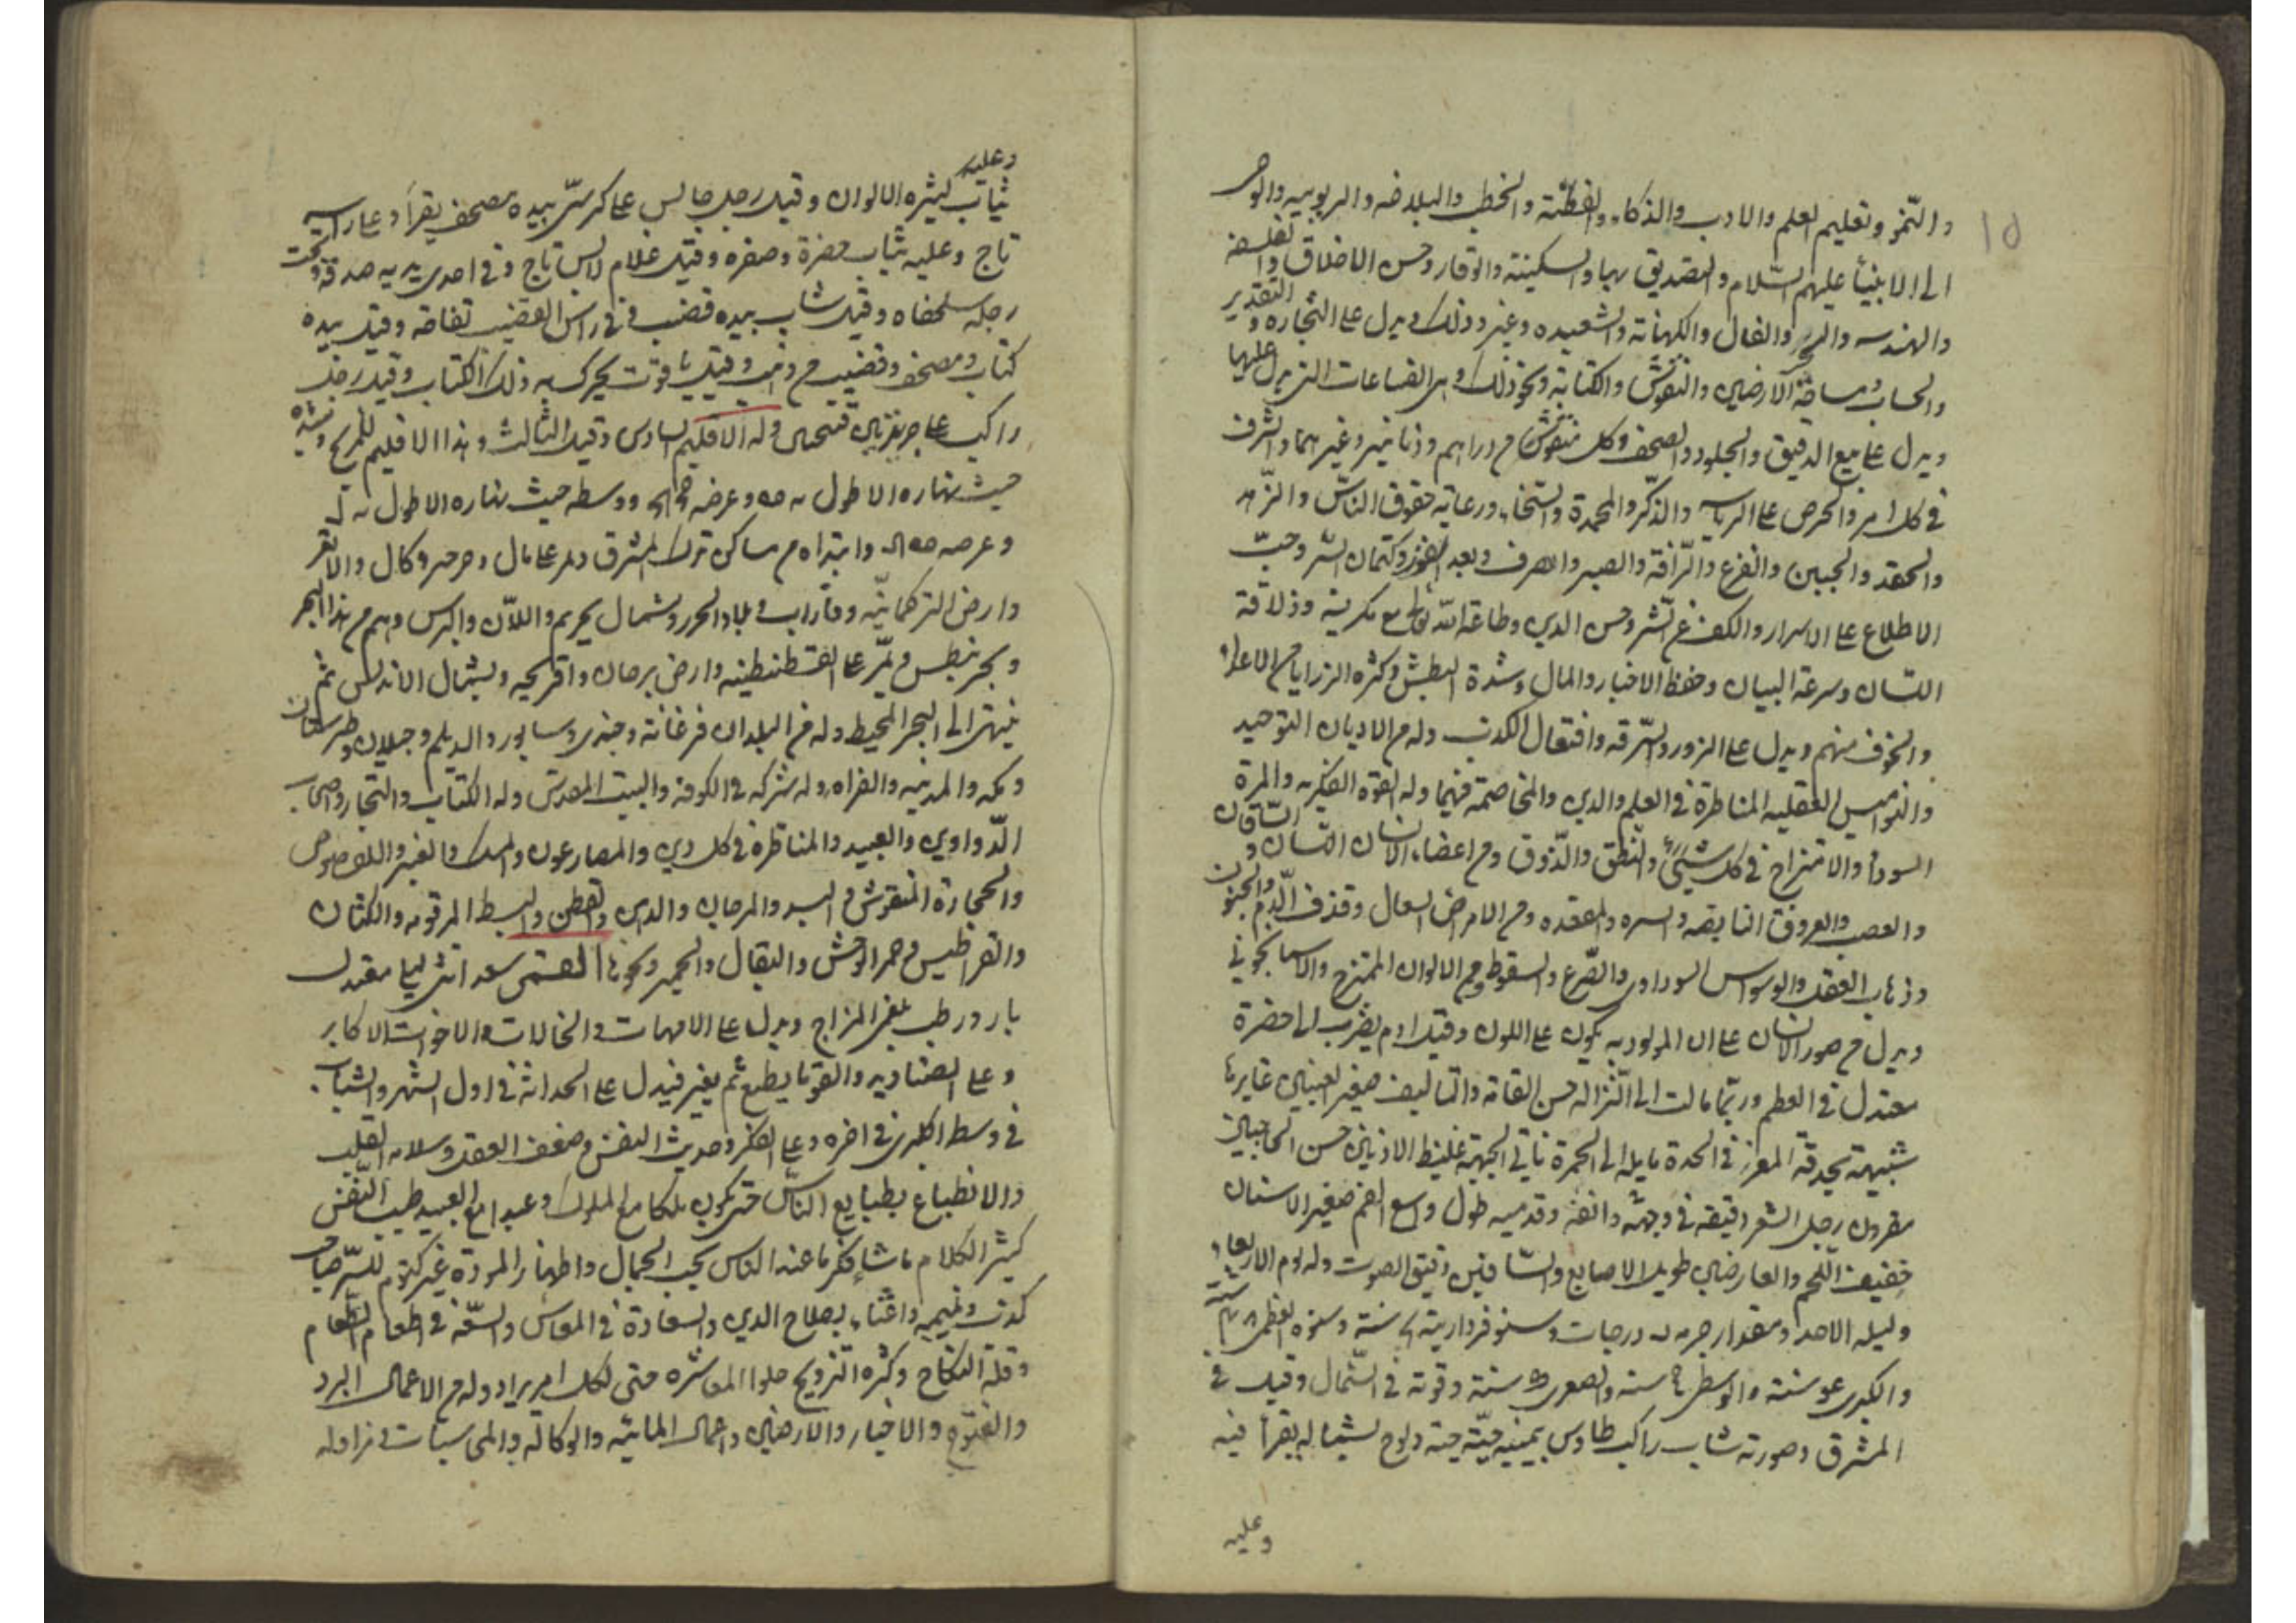 ١٥
والنمو وتعليم العلم والادب والذكاء والفطنة والخطب والبلاغه والربوبيه والوحى
الى الانبياء عليهم السّلام والتصديق بها والسكينة والوقار وحسن الاخلاق والفلسفه
والهندسه والزجر والفال والكهانة والشعبده وغير وذلك ويدل على التجاره والتقدير
والحساب ومساحة الارضين والنقوش والكتابة ونحو ذلك وهى الصناعات التى يدل عليها
ويدل على بيع الدقيق والجلود والصحف وكل منقوش من دراهم ودنانير وغيرهما والشرف
فى كل امر والحرص على الرياسه والذّكر والمحمدة والسّخاء ورعاية حقوق النّاس والزّهد
والحقد والجبن والفزع والرّافة والصبر والصرف وبعد الغور وكتمان السّر وحبّ
الاطلاع على الاسرار والكف عن الشّر وحسن الدين وطاعة اللّه تعالى مع وذلاقة
اللّسان وسرعة البيان وحفظ الاخبار والمال وشدة البطش وكثره الرزايا من الاعداء
والخوف منهم ويدل على الزور والسّرقه وافتعال الكذب وله من الاديان التوحيد
والنواميس العقليه المناظرة فى العلم والدين والمخاصمة فيهما وله القوة الفكريه والمرة
السوداء والامتزاج فى كل شيئ والنّطق والذّوق ومن اعضاء الانسان اللسان والسّاقان
والعصب والعروق النابضه والسره والمعده ومن الامراض السعال وقذف الّدم والجنون
وذهاب العقل والوسواس السوداوى والصّرع والسقوط ومن الالوان الممتزج والاسمانجونى
ويدل من صور الانسان على ان المولود به يكون على اللون وقيل ادم يضرب الى خضرة
معتدل فى العظم وربّما مالت الى النّزاله حسن القامة والتاليف صغير العينين غايرها
شبيهة بحدقة المعز فى الحدة مايله الى الحمرة ناتى الجبهة غليظ الاذنين حسن الحاجبين
مقرون رجل الشعر دقيقه فى وجهه وانفه وقدميه طول واسع الفم صغير الاسنان
خفيف اللّحم والعارضين طويل الاصابع والسّاقين دقيق الصوت وله يوم الاربعاء
وليله الاحد ومقدار جرمه درجات وسنو فرداريته سنة وسنوه العظمى سنة
والكبرى عو سنة والوسطى سنه والصغرى سنة وقوته فى الشّمال وقيل فى
المشرق وصورته شاب راكب طاوس بيمينه حيّة ولوح بشماله يقرأ فيه
وعليه
وعليه
ثياب كثيره الالوان وقيل رجل جالس على كرسىّ بيده مصحف يقرأ وعلى راسه
تاج وعليه ثياب خضرة وصفره وقيل غلام لابس تاج وفى احدى يديه صدقة وتحت
رجله سلحفاه وقيل شاب بيده قضيب فى راس القضيب تفاحه وقيل بيده
كتاب ومصحف وقضيب من ذهب وقيل ياقوت يحرك به ذلك الكتاب وقيل رجل
راكب على وله الاقليم السادس وقيل الثالث وهذا الاقليم للمريخ
حيث نهاره الاطول وعرضه ووسطه حيث نهاره الاطول
وعرضه وابتداه من مساكن ترك المشرق
وارض التركمانيّه وفاراب و بلاد الخزر وشمال بحرهم واللاّن والبرس وهم من هذا البحر
وبحر نيطس ويمّر على القسطنطينه وارض برجان وافرنجيه وبشمال الاندلس ثم
ينتهى الى البحر المحيط وله من البلدان فرغانة وجندى وسابور والديلم وجيلان وطبرستان
ومكه والمدينه والفراه وله شركه فى الكوفه والبيت المقدس وله الكتاب والتجار واصحاب
الدّواوين والعبيد والمناظرة فى كل دين والمصارعون والمسك والعنبر واللصوص
والحجارة المنقوش و والمرجان والدين والقطن والبسط المرقومه والكتان
والقراطيس وحمر الوحش والبقال والحمير ونحوها القمر سعد انثى ليلى معتدل
بارد رطب بلغمى المزاج ويدل على الامهات والخالات والاخوات الاكابر
وعلى ثم يغير فيدل على الحداثة فى اول الشهر والشباب
فى وسط الكبر فى اخره وعلى الفكر وحديث النفس وضعف العقل وسلامه القلب
والانطباع بطبايع النّاس حتى يكون ملكا مع الملوك وعبدا مع العبيد طيب النّفس
كثير الكلام ناشا فكر ما عند الناس يحب الجمال واظهار المروة غير كتوم للسّر صاحب
كذب ونميمه واعتناء بصلاح الدين والسعادة فى المعاش والسّعه فى اطعام الطعام
وقلة النكاح وكثره التزويج حلو المعاشره حتى لكل امر يراد وله من الاعمال البرد
والفتوح والاخبار والارضين واعمال المائيّه والوكالة والمحاسبات